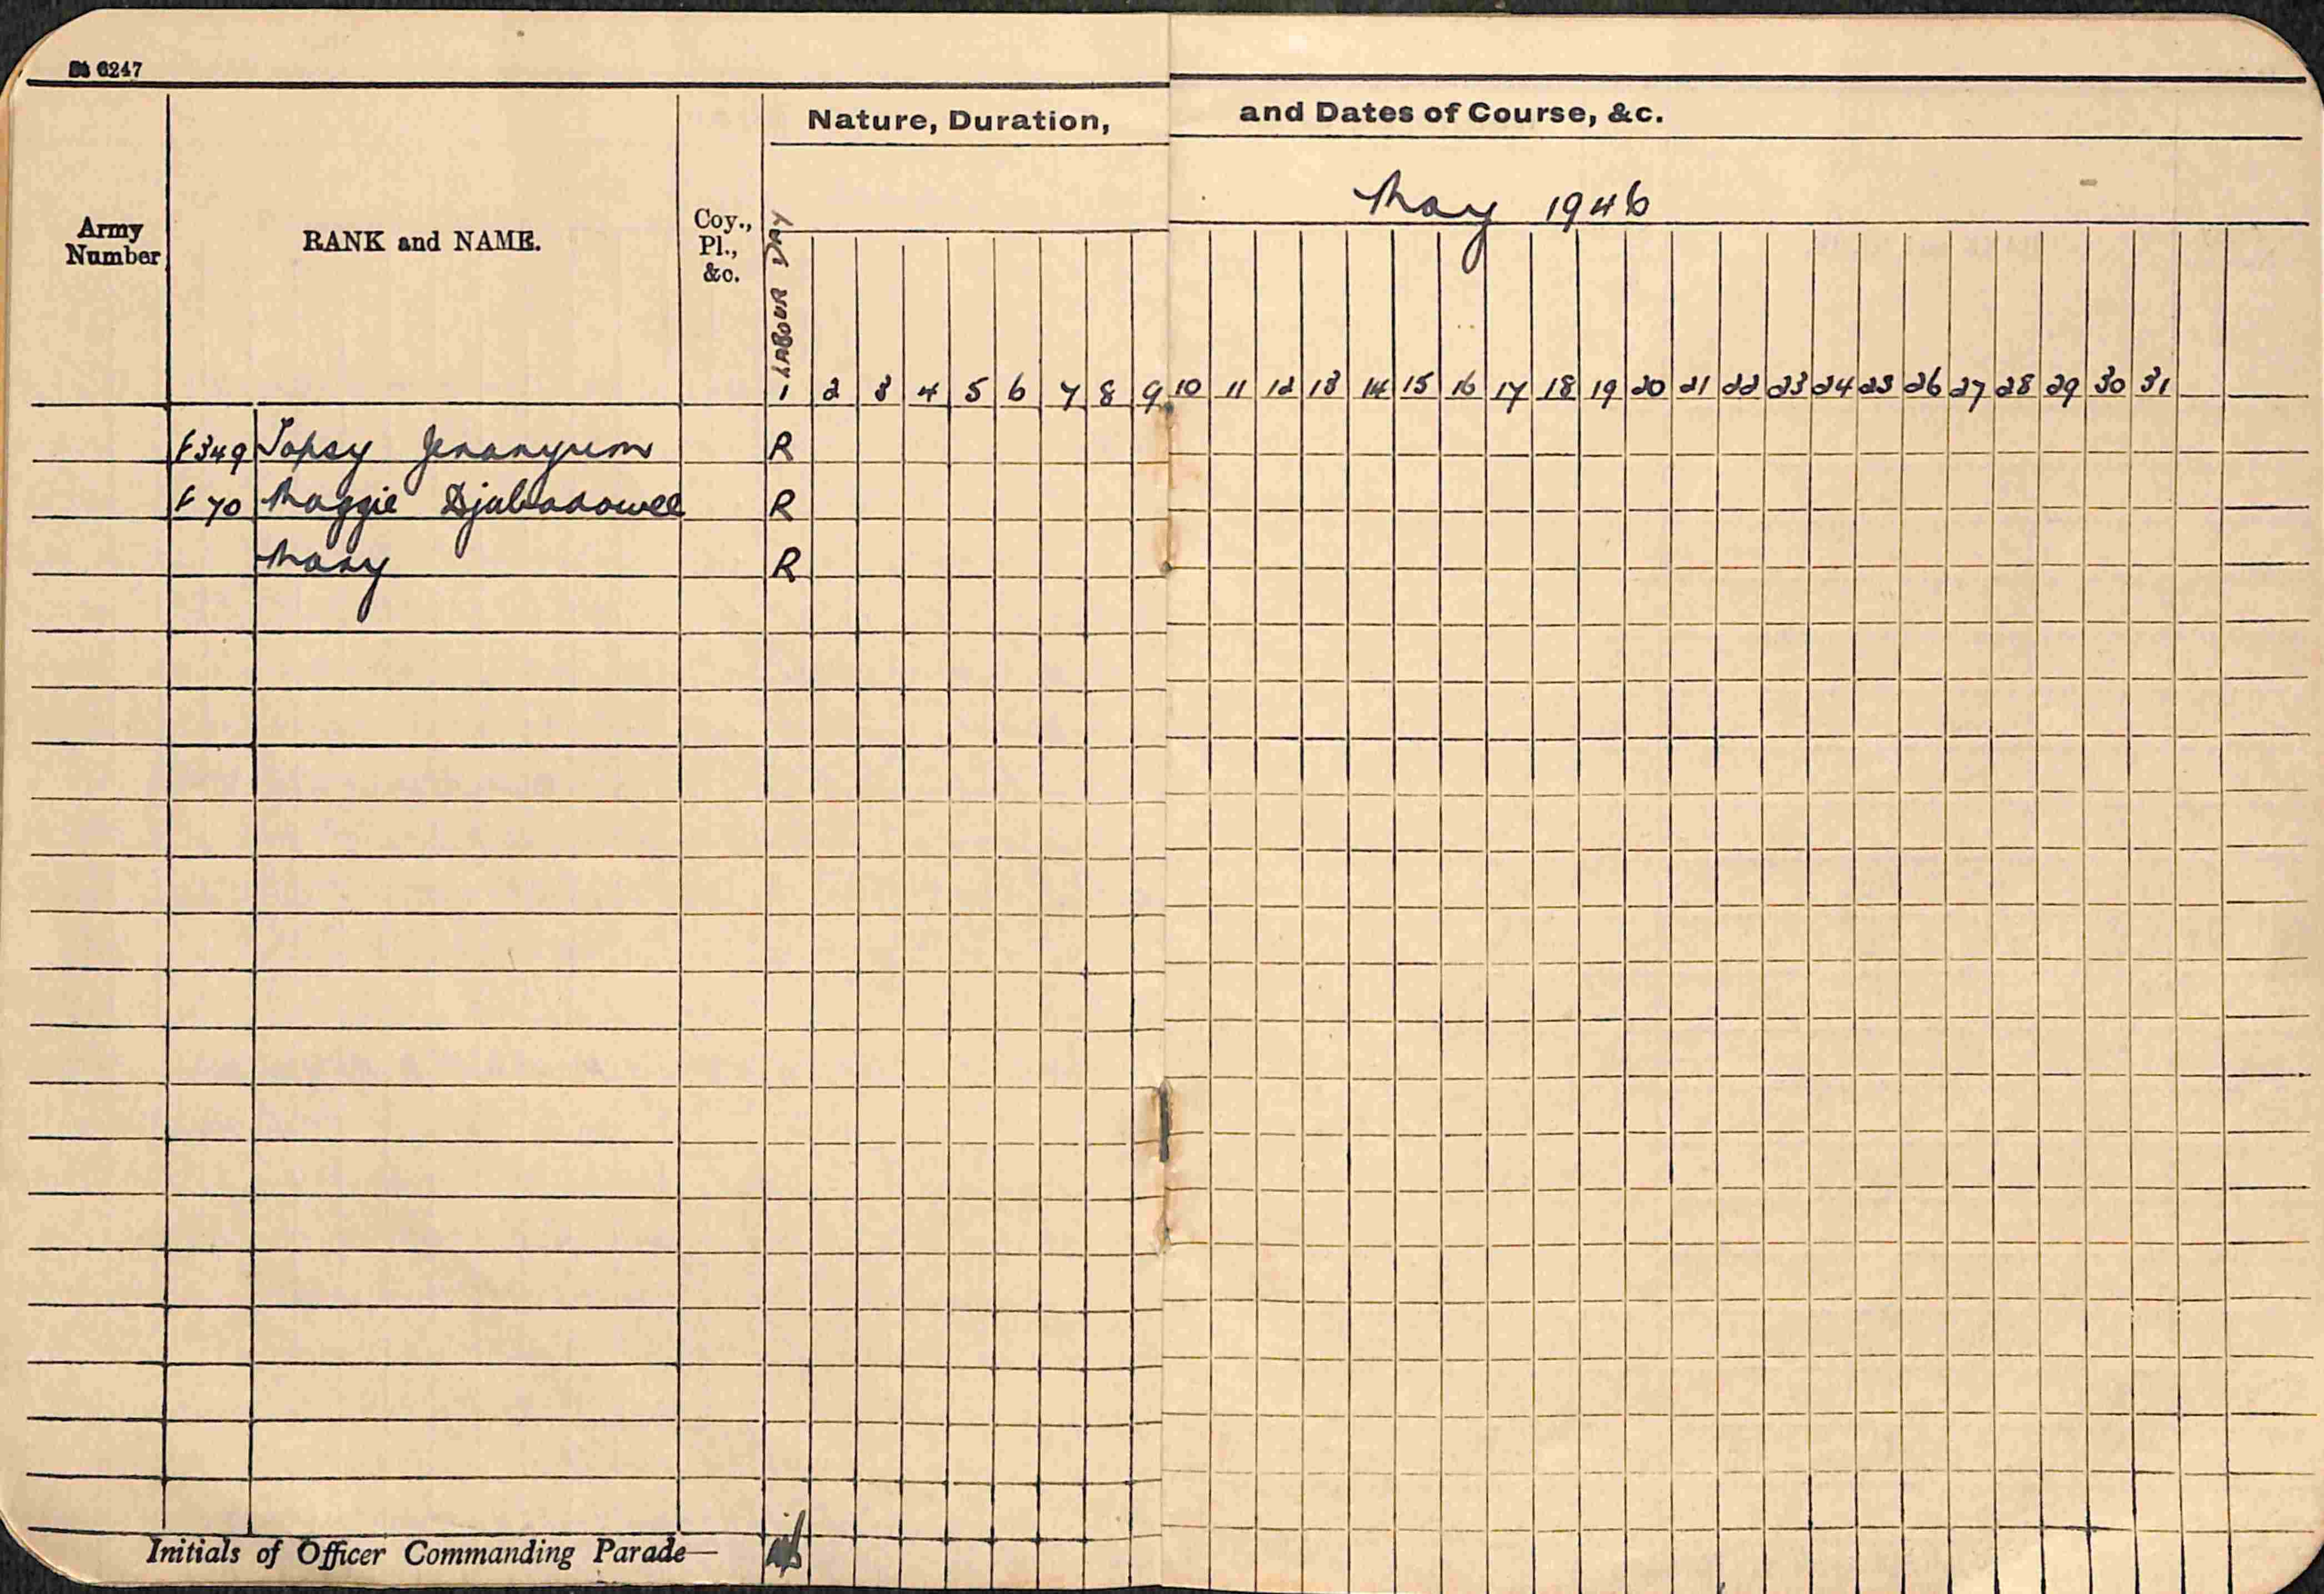 6247
Nature, Duration, and Dates of Course, &c.
May 1946
Army Number
RANK and NAME.
Coy., Pl., &c.
LABOUR DAY
1 2 3 4 5 6 7 8 9 10 11 12 13 14 15 16 17 18 19 20 21 22 23 24 25 26 27 28 29 30 31
F349 Topsy R
F70 Maggie R
Mary R
Initials of Officer Commanding Parade—